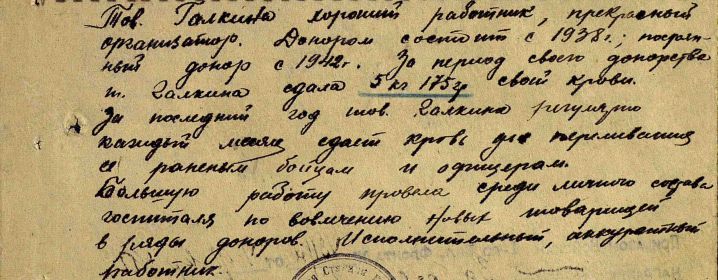 Тов. Галкина хороший работник, прекрасный
организатор. Донором состоит с 1938г.; постоян-
ный донор с 1942г. За период своего донорства
т. Галкина сдала 5 кг 175 гр своей крови.
За последний год тов. Галкина регулярно
каждый месяц сдает кровь для переливания
ее раненым бойцам и офицерам.
Большую работу провела среди личного состава
госпиталя по вовлечению новых товарищей
в ряды доноров. Исполнительный, аккуратный
работник.